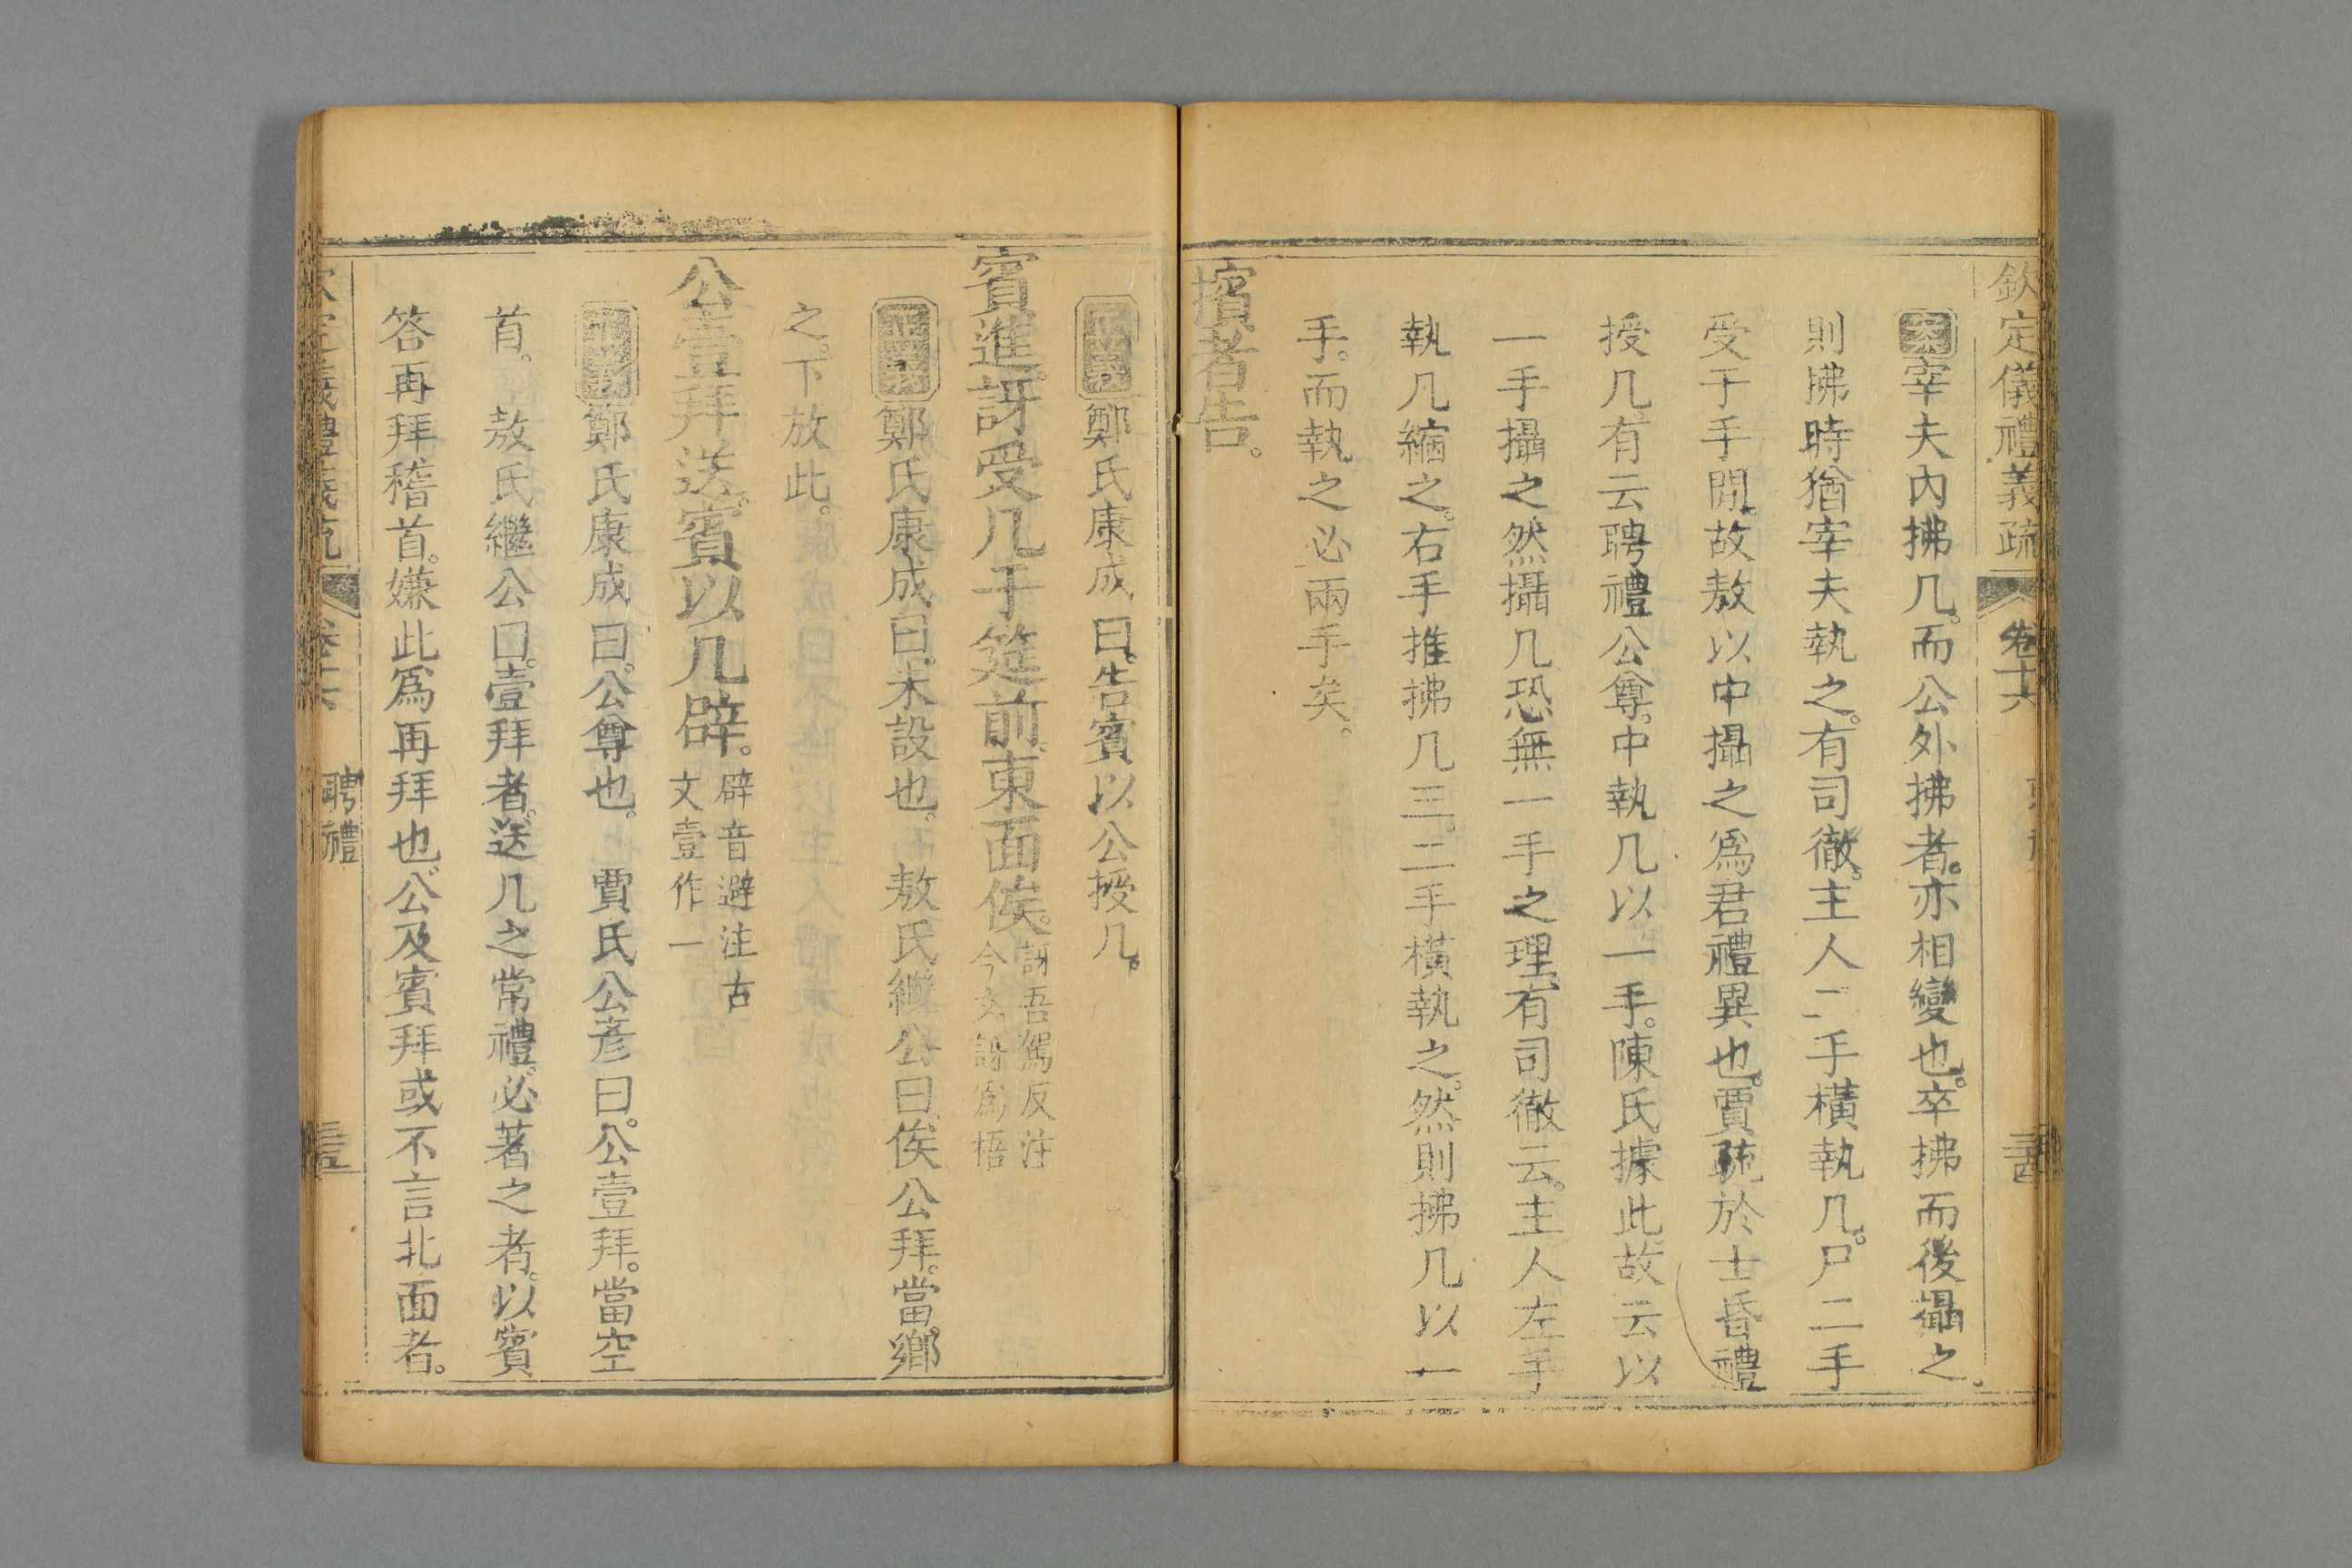 欽定儀禮義疏 卷十六
案宰夫內拂几。而公外拂者。亦相變也。卒拂而後攝之。
則拂時猶宰夫執之。有司徹。主人二手橫執几。尸二手
受于手閒。故敖以中攝之爲君禮異也。賈疏於士昏禮
授几。有云聘禮公尊。中執几以一手。陳氏據此。故云以
一手攝之。然攝几恐無一手之理。有司徹云。主人左手
執几縮之。右手推拂几三。二手橫執之。然則拂几以一
手。而執之必兩手矣。
擯者告。
正義鄭氏康成曰。告賓以公授几。
賓進。訝受几于筵前。東面俟。訝吾駕反注
今文訝爲梧
正義鄭氏康成曰。未設也。 敖氏繼公曰。俟公拜。當鄉
之。下放此。
公壹拜送。賓以几辟。辟音避注古
文壹作一
正義鄭氏康成曰。公尊也。 賈氏公彦曰。公壹拜。當空
首。 敖氏繼公曰。壹拜者。送几之常禮。必著之者。以賓
答再拜稽首。嫌此爲再拜也。公及賓拜或不言北面者。
卷十六 聘禮